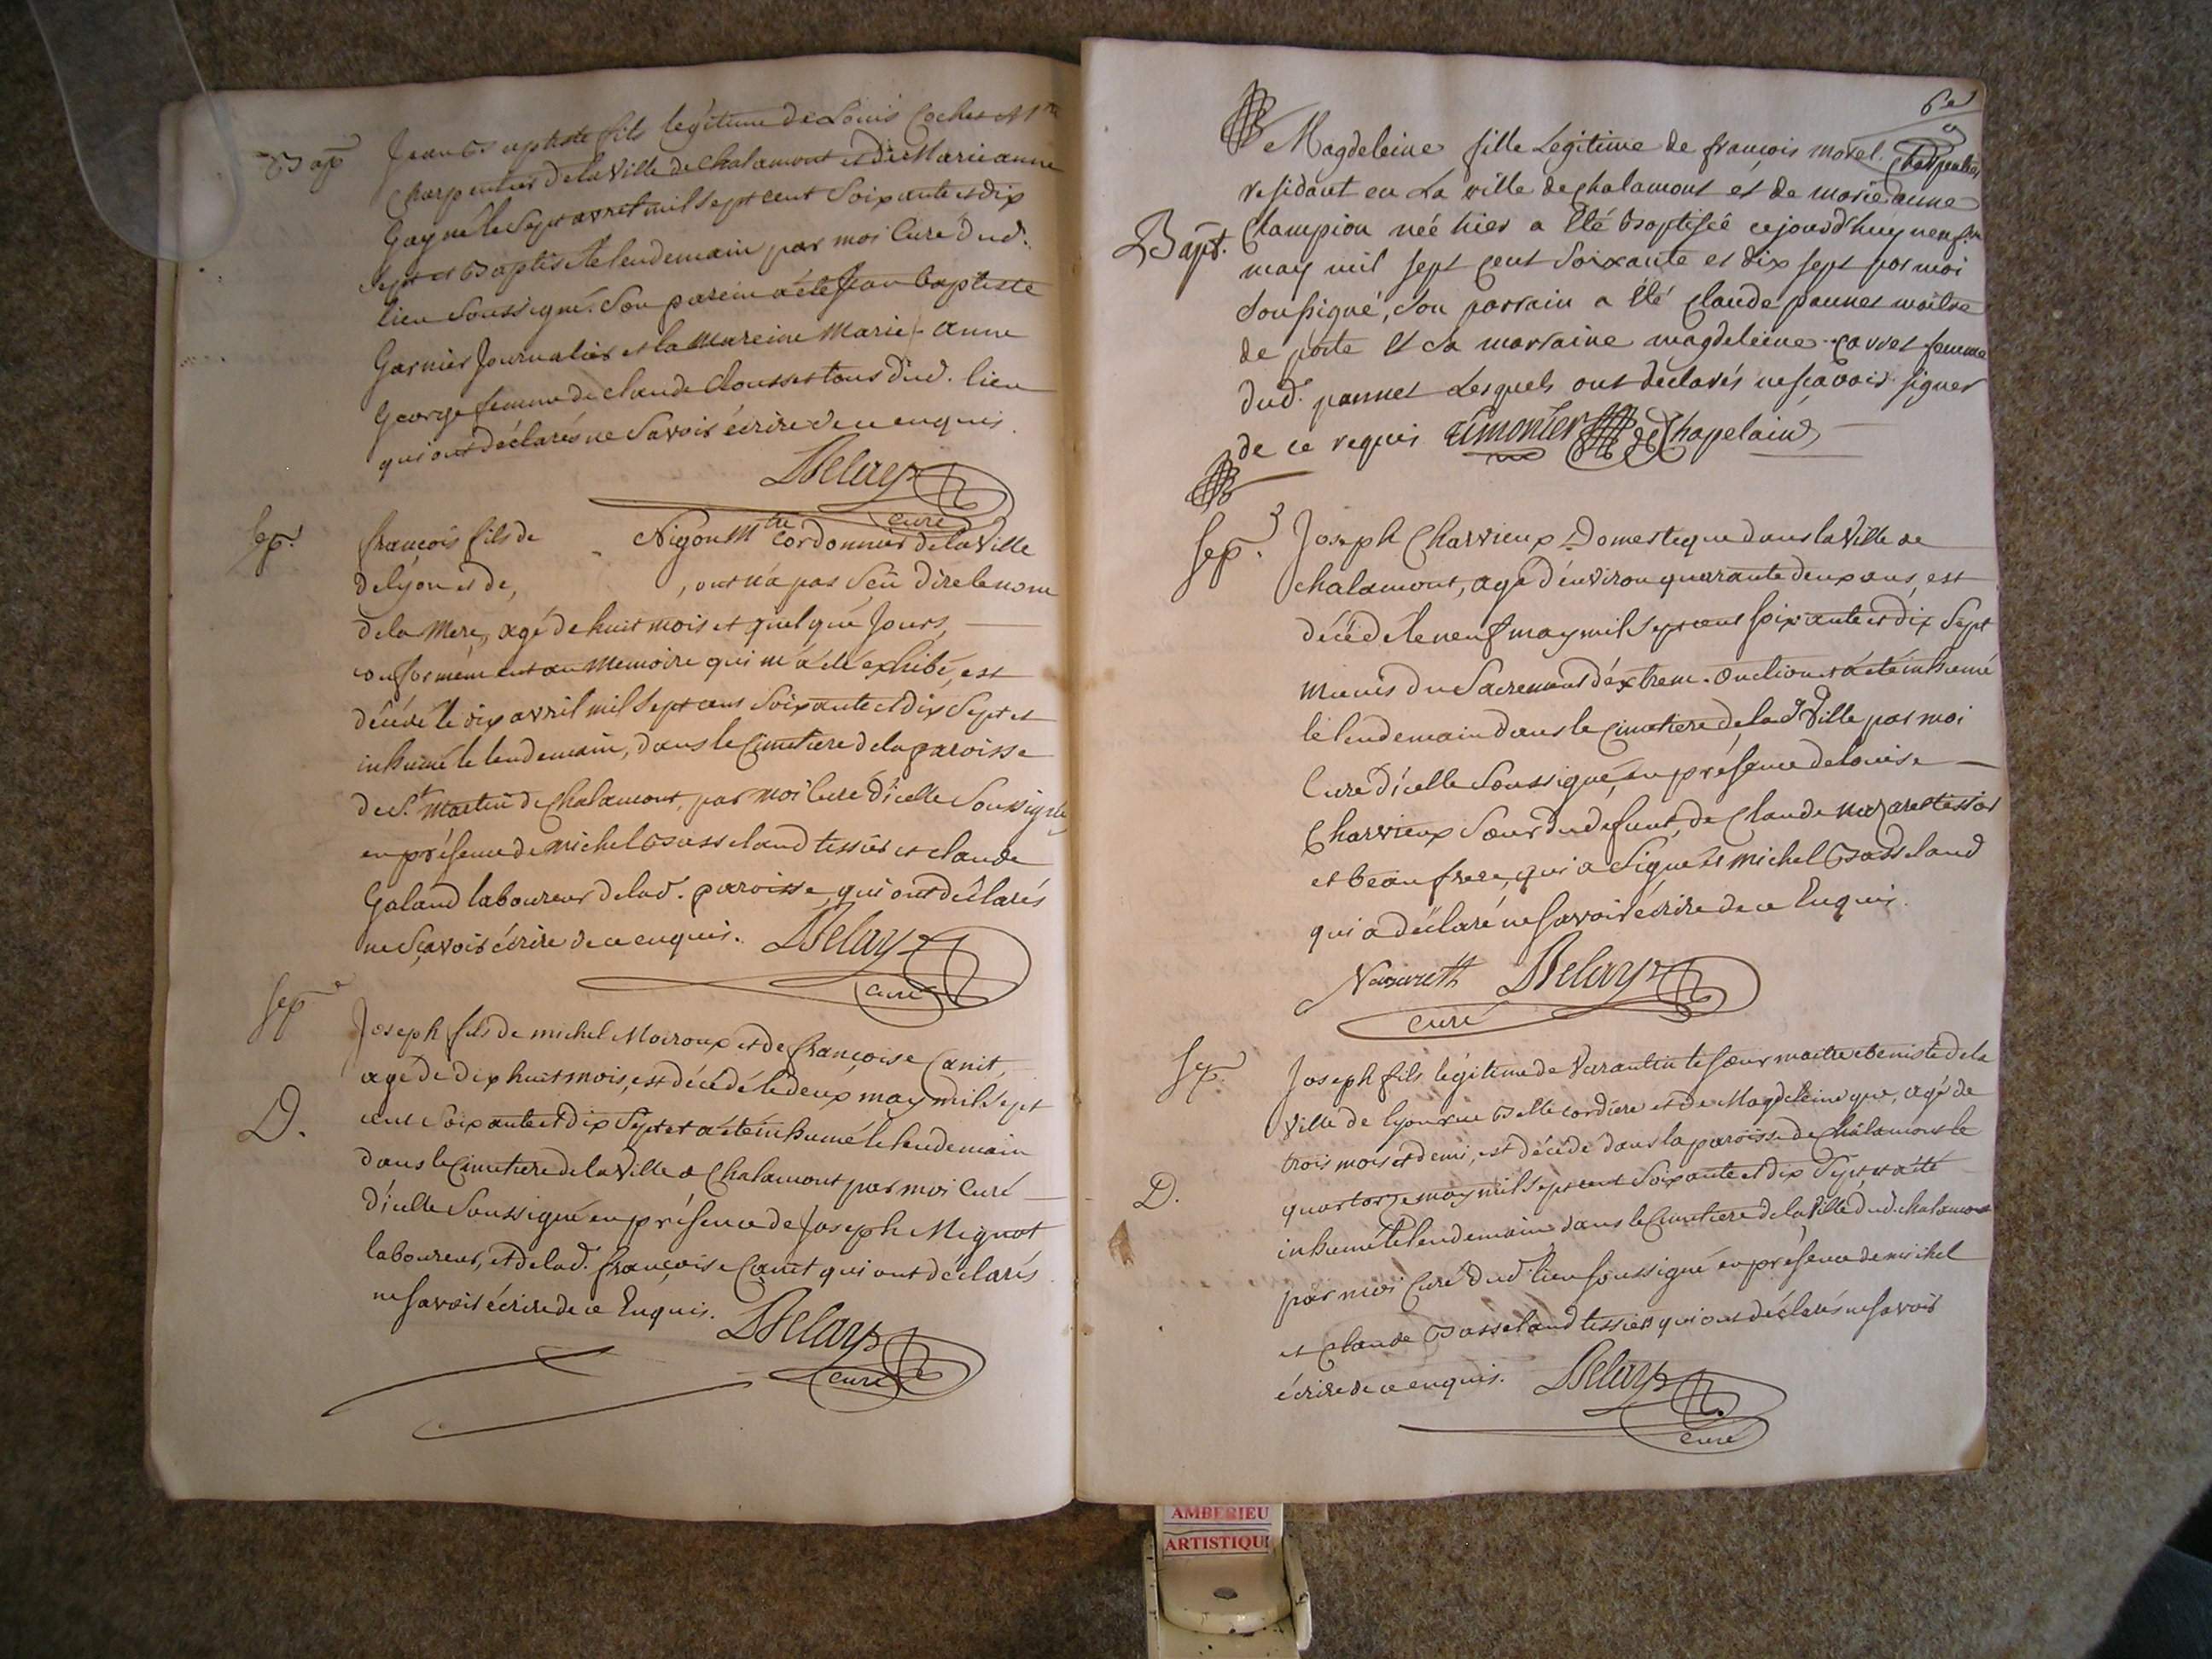 Bap
Jean Baptiste fils légitime de Louis Cochet Mtre
Charpentier de la Ville de Chalamont et de Marie anne
Gay né le Sept avril mil sept cent Soixante et dix
Sept et Baptisé le lendemain par moi Curé dud.
lieu Soussigné. Son parein a été Jean baptiste
Garnier Journalier et la Mareine Marie anne
George femme de claude Clousset tous dud. lieu
qui ont déclarés ne Savoir écrire de ce enquis.
Delay
curé
Sep.
françois fils de Nigon Mtre Cordonnier de la Ville
de lyon et de, , on n'a pas Sçû dire le nom
de la Mere, agé de huit mois et quelque Jours,
conformément au Memoire qui m'a été exhibé, est
décédé le dix avril mil Sept cent Soixante et dix Sept et
inhumé le lendemain, dans le Cimetiere de la paroisse
de St. Martin de Chalamont, par moi Curé d'icelle Soussigné,
en présence de Michel Basseland tessier et claude
Galand laboureur de lad. paroisse, qui ont déclarés
ne Sçavoir écrire de ce enquis. Delay
curé
Sep
Joseph fils de michel Moiroux et de françoise Canit,
agé de dix huit mois, est décédé le deux may mil Sept
D.
cent Soixante et dix Sept et a été inhumé le lendemain
dans le Cimetiere de la Ville de Chalamont par moi Curé
d'icelle Soussigné en présence de Joseph Mignot
laboureur, et de lad. françoise Canit qui ont déclarés
ne Savoir écrire de ce Enquis. Delay
curé
6e
Magdeleine fille Legitime de françois morel Charpentier
residant en La ville de chalamont et de marie anne
Bapt.
Clampion née hier a Eté Baptisée cejourd'huy neuf
may mil sept cent Soixante et dix sept par moi
Soussigné, Son parrain a Eté Claude pannet maitre
de poste Et Sa marraine magdeleine carret femme
dud. pannet Lesquels ont déclarés ne sçavoir signer
de ce requis Limonier Chapelain
Sep.
Joseph Charvieux Domestique dans la Ville de
Chalamont, agé d'environ quarante deux ans, est
décédé le neuf may mil Sept cent Soixante et dix Sept
Munis du Sacrement d'extrem-onction et a été inhumé
le lendemain dans le Cimetiere de lad. Ville par moi
Curé d'icelle Soussigné, en présence de louise
Charvieux Soeur du defunt, de Claude Nazaret tessier
et beau frere, qui a Signé et michel Basseland
qui a déclaré ne Savoir écrire de ce Enquis.
Nazareth Delay
curé
Sep.
Joseph fils légitime de Varantin le Soeur maitre ebeniste de la
Ville de lyon rue Belle cordiere et de Magdeleine que, agé de
trois mois et demi, est décédé dans la paroisse de Chalamont le
D.
quatorze may mil Sept cent Soixante et dix Sept, et a été
inhumé le lendemain dans le Cimetiere de la Ville dud. chalamont
par moi Curé dud. lieu Soussigné en présence de michel
et Claude Basseland tessiers qui ont déclarés ne Savoir
écrire de ce enquis. Delay
curé
AMBERIEU
ARTISTIQU